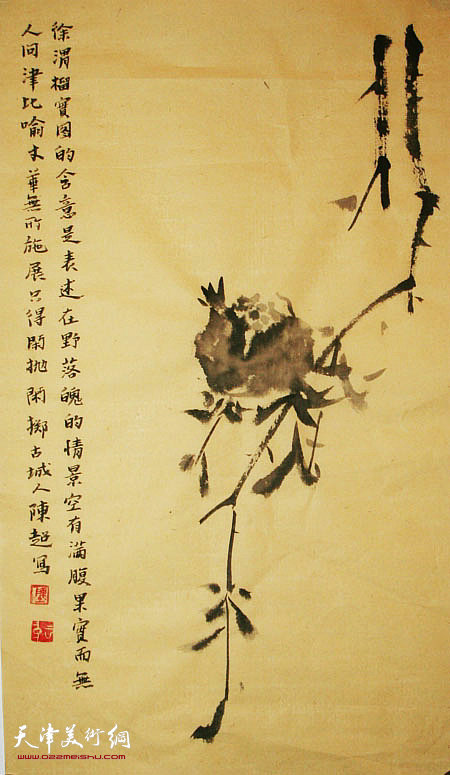 徐渭榴實图的含意是表述在野落魄的情景空有滿腹果實而無
人问津比喻才華無所施展只得閑抛閑擲古城人陳超寫
天津美術網
www.022meishu.com